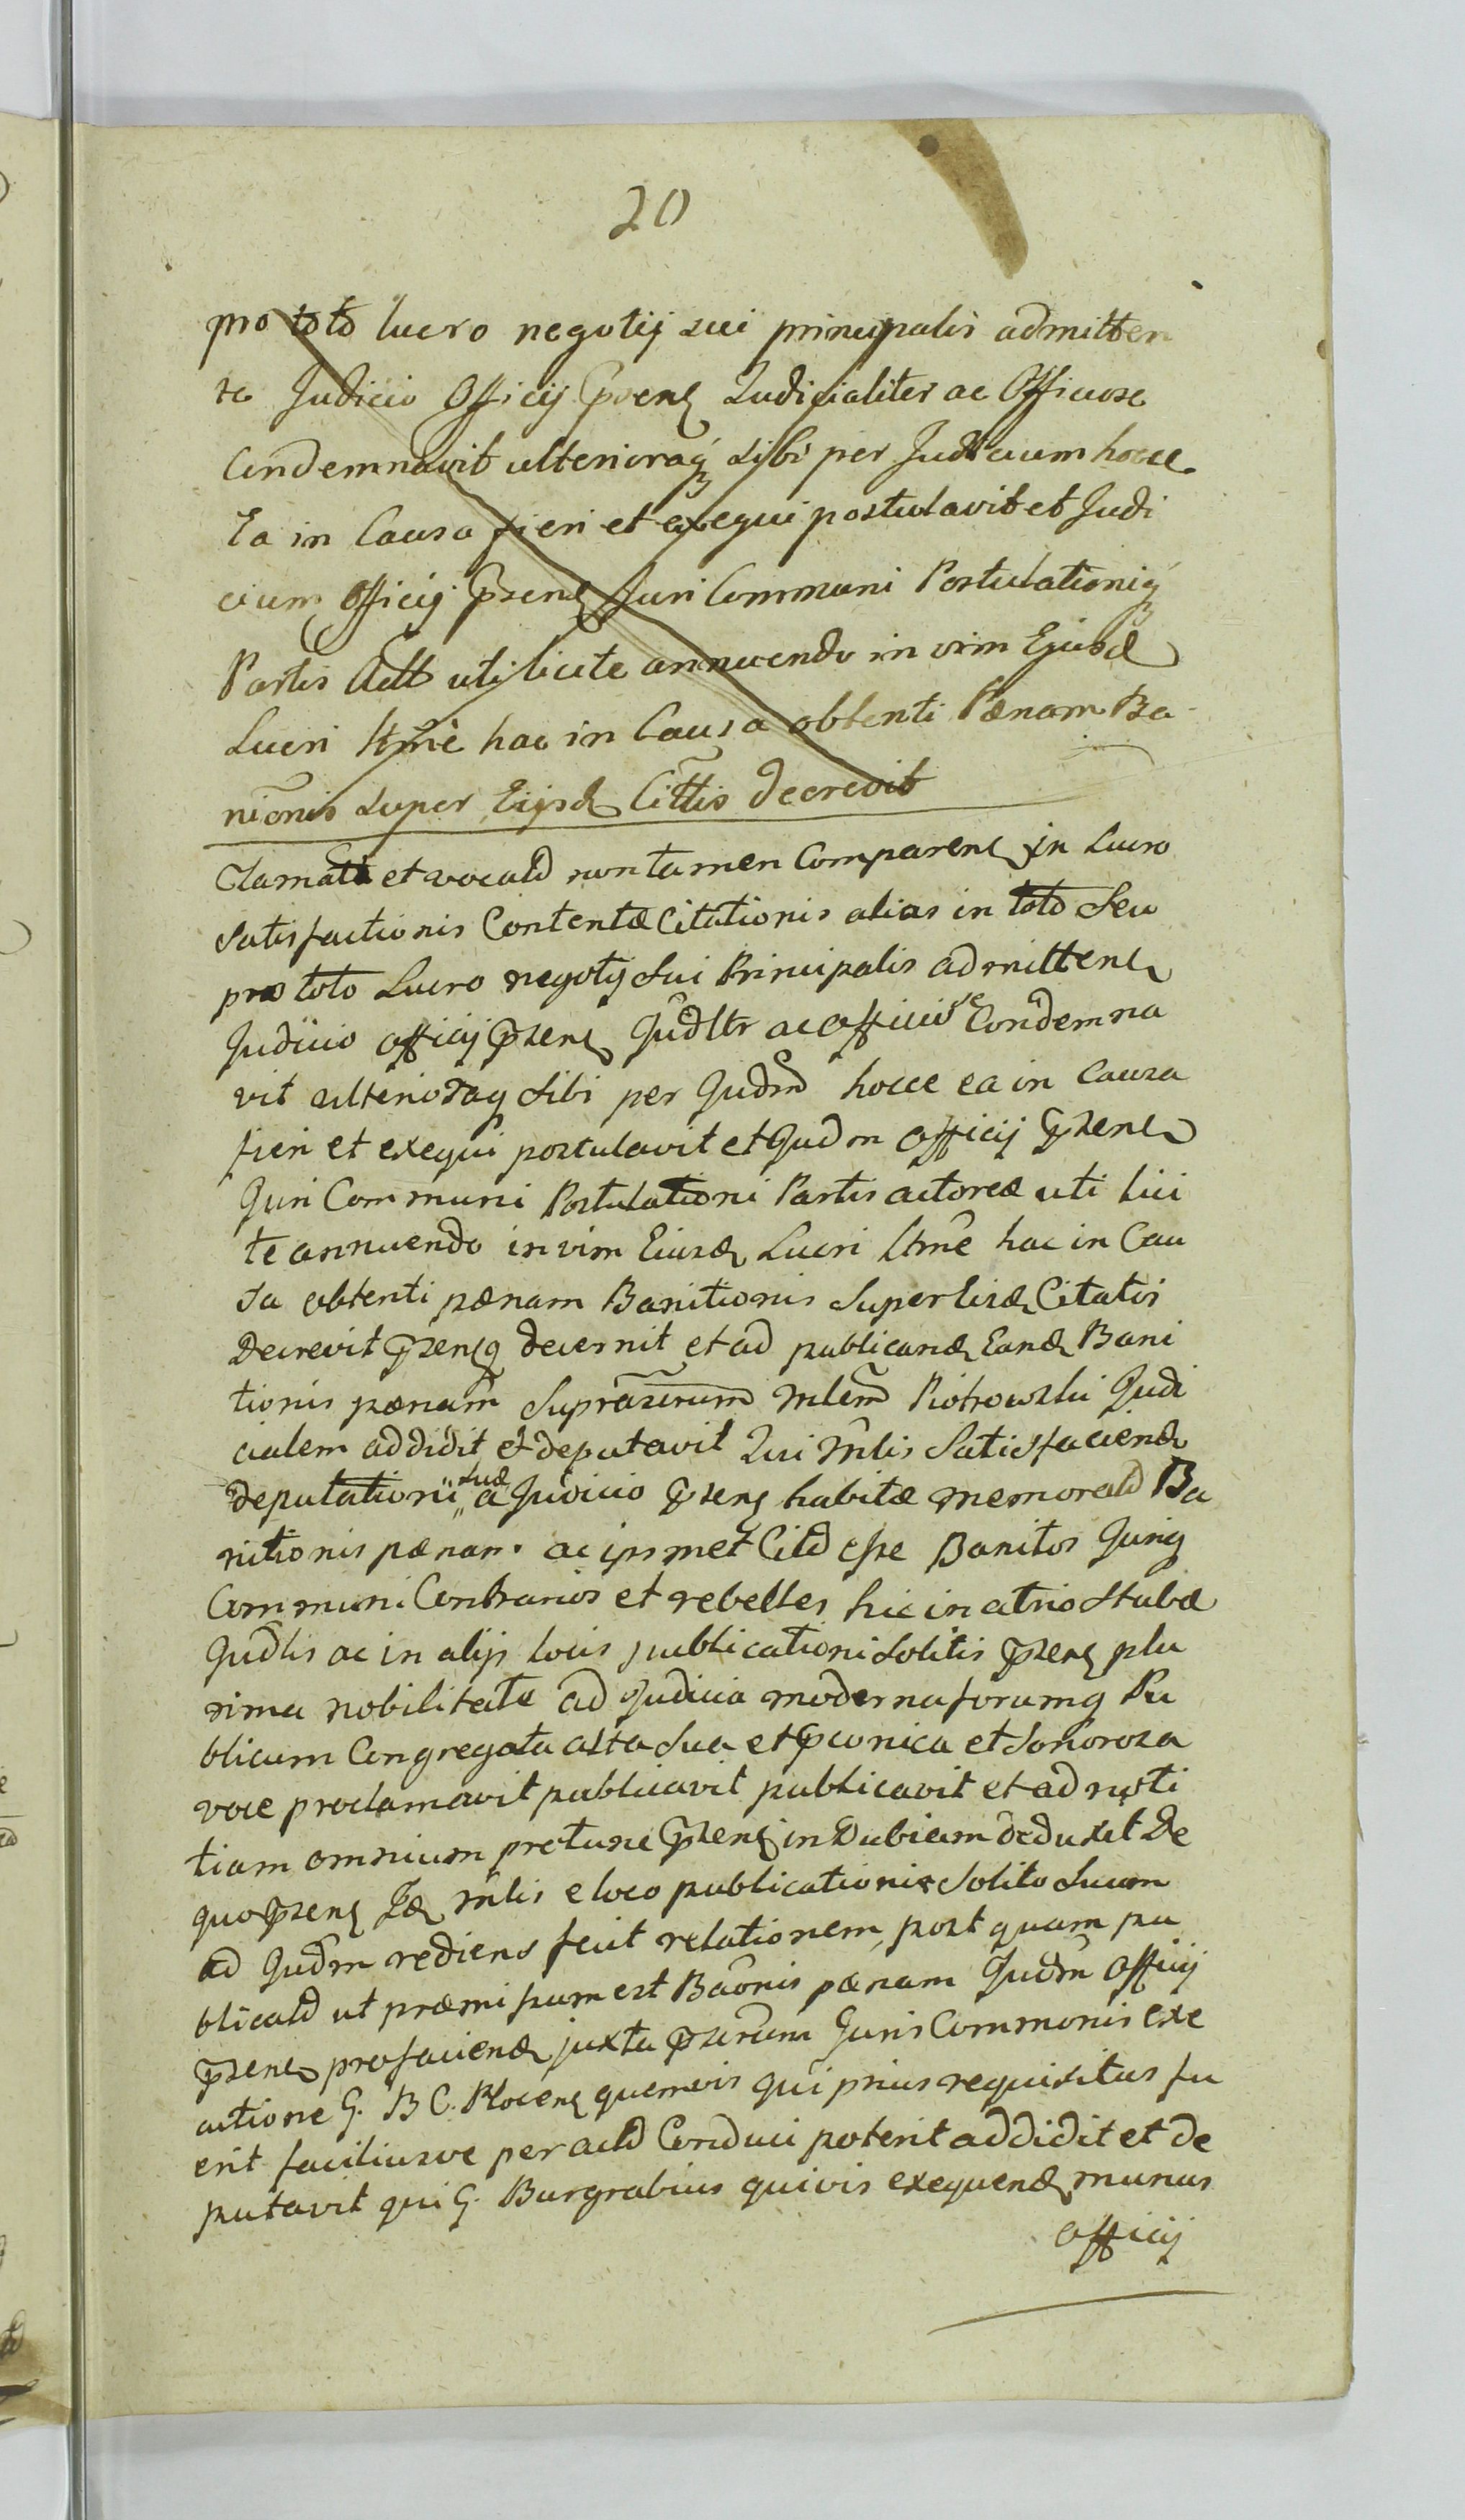 20
pro toto lucro negotij sui principalis admitten
te Judicio Officij Prens Judicialiter ac Officiose
Condemnavit ulterioraq sibi per Judicium hocce
Ea in Causa fieri et exequi postulavit et Judi
cium Officij Prens Juri Communi Postulationiq
Partis Actt uti licite annuendo in vim Ejusd
Lucri ltme hac in Causa obtenti Pænam Ba
nionis super Eijsd Cittis decrevit
Clamatt et vocatd non tamen Comparen in Lucro
Satisfactionis Contentæ Citationis alias in toto Seu
pro toto Lucro negotij Sui Principalis admitten
Judicio officij Przens Judltr ac officiose Condemna
vit ulterioraq Sibi per Judm hocce ea in causa
fieri et exequi postulavit et Judm officij Przens
Juri Communi Postulationi Partis actoreæ uti lici
te annuendo in vim Eiusd Lucri ltme hac in Cau
sa obtenti pænam Banitionis Super Eisd Citatis
Decrevit Przensq decernit et ad publicand Eand Bani
tionis pænam Suprazrum Mlem Piotrowski Judi
cialem addidit et deputavit Qui Mlis Satisfaciend
deputationi suæ a Judicio Przens habitæ memoratd Ba
nitionis pænam ac ipsmet Citd esse Banitos Juriq
Communi Contrarios et rebelles hic in atrio Stubæ
Judlis ac in alijs locis publicationi Solitis Przens plu
rima nobilitate ad Judicia moderna forumq Pu
blicum Congregata alta Sua et Pconica et Sonorosa
voce proclamavit publicavit publicavit et ad noti
tiam omnium pretunc Przens in Dubiam deduxit De
quo Przens Id Mlis e loco publicationis Solito Suum
ad Judm rediens fecit relationem post quam pu
blicatd ut præmissum est Baonis pænam Judm Officij
Przens profaciend juxta Przrum Juris Communis exe
cutione G. B C. Plocens quemvis qui prius requisitus fu
erit faciliusve per actd Conduci poterit addidit et de
putavit qui G. Burgrabius quivis exequend munus
officij